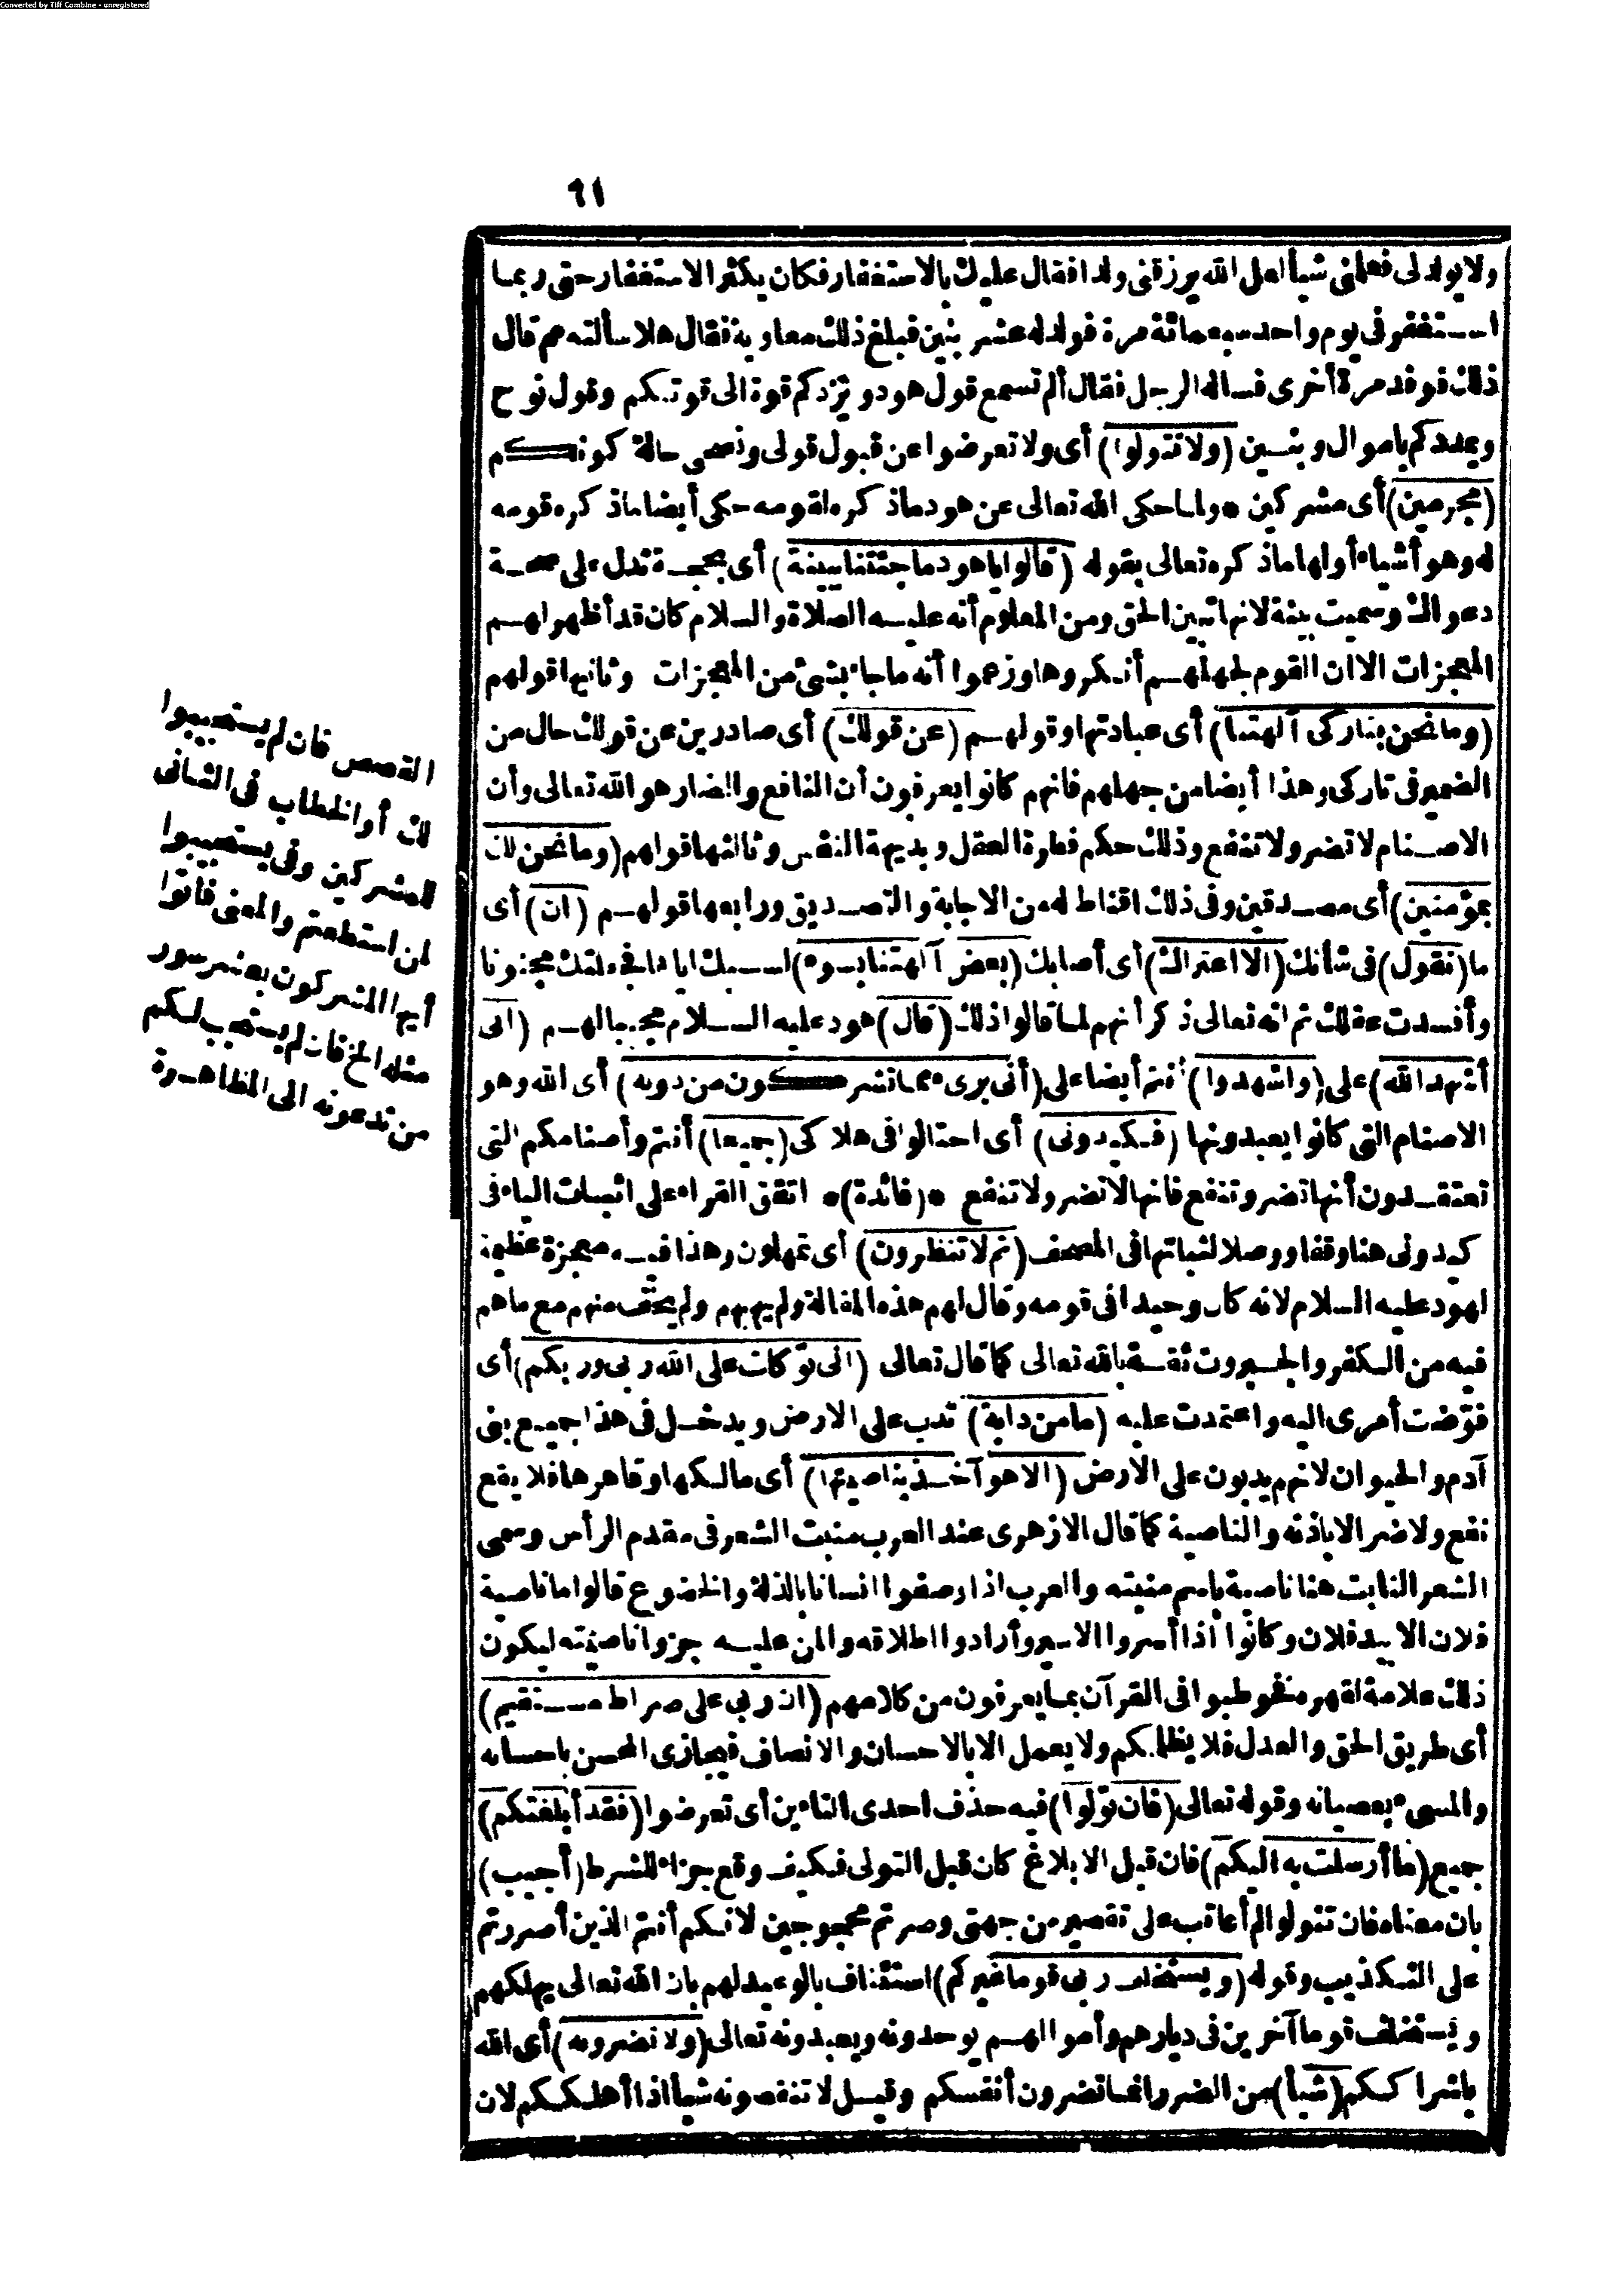 Converted by Tiff Combine - unregistered
٦١
ولا يولد لى فعلمنى شيأ لعل الله يرزقنى ولدا فقال عليك بالاستغفار فكان يكثر الاستغفار حتى ربما
استغفر فى يوم واحد سبعمائة مرة فولد له عشر بنين فبلغ ذلك معاوية فقال هلا سألته مم قال
ذلك فوفد مرة أخرى فساله الرجل فقال ألم تسمع قول هود ويزدكم قوة الى قوتكم وقول نوح
ويمددكم باموال وبنين (ولا تتولوا) أى ولا تعرضوا عن قبول قولى ونصحى حالة كونكم
(مجرمين) أى مشركين * ولما حكى الله تعالى عن هود ماذكره لقومه حكى أيضا ماذكره قومه
له وهو أشياء أولها ماذكره تعالى بقوله (قالوا ياهود ماجئتنا ببينة) أى بحجة تدل على صحة
دعواك وسميت بينة لانها تبين الحق ومن المعلوم أنه عليه الصلاة والسلام كان قد أظهر لهم
المعجزات الا ان القوم لجهلهم أنكروها وزعموا أنه ماجاء بشئ من المعجزات وثانيها قولهم
(وما نحن بتاركى آلهتنا) أى عبادتها وقولهم (عن قولك) أى صادرين عن قولك حال من
الضمير فى تاركى وهذا أيضا من جهلهم فانهم كانوا يعرفون أن النافع والضار هو الله تعالى وأن
الاصنام لا تضر ولا تنفع وذلك حكم فطرة العقل وبديهة النفس وثالثها قولهم (وما نحن لك
بمؤمنين) أى مصدقين وفى ذلك اقناط له من الاجابة والتصديق ورابعها قولهم (ان) أى
ما (نقول) فى شأنك (الا اعتراك) أى أصابك (بعض آلهتنا بسوء) لسبك اياها فجعلتك مجنونا
وأفسدت عقلك ثم انه تعالى ذكر أنهم لما قالوا ذلك (قال) هود عليه السلام مجيبا لهم (انى
أشهد الله) على (واشهدوا) أنتم أيضا على (أنى برىء مما تشركون من دونه) أى الله وهو
الاصنام التى كانوا يعبدونها (فكيدونى) أى احتالوا فى هلاكى (جميعا) أنتم وأصنامكم التى
تعتقدون أنها تضر وتنفع فانها لا تضر ولا تنفع * (فائدة) * اتفق القراء على اثبات الياء فى
كيدونى هنا وقفا ووصلا لثباتها فى المصحف (ثم لا تنظرون) أى تمهلون وهذا فيه معجزة عظيمة
لهود عليه السلام لانه كان وحيدا فى قومه وقال لهم هذه المقالة ولم يهبهم ولم يخف منهم مع ماهم
فيه من الكفر والجبروت ثقة بالله تعالى كما قال تعالى (انى توكلت على الله ربى وربكم) أى
فوّضت أمرى اليه واعتمدت عليه (مامن دابة) تدب على الارض ويدخل فى هذا جميع بنى
آدم والحيوان لانهم يدبون على الارض (الا هو آخذ بناصيتها) أى مالكها وقاهرها فلا يقع
نفع ولا ضر الا باذنه والناصية كما قال الازهرى عند العرب منبت الشعر فى مقدم الرأس وسمى
الشعر النابت هنا ناصية باسم منبته والعرب اذا وصفوا انسانا بالذلة والخضوع قالوا ما ناصية
فلان الا بيد فلان وكانوا اذا أسروا الاسير وأرادوا اطلاقه والمن عليه جزوا ناصيته ليكون
ذلك علامة لقهره فخوطبوا فى القرآن بما يعرفون من كلامهم (ان ربى على صراط مستقيم)
أى طريق الحق والعدل فلا يظلمكم ولا يعمل الا بالاحسان والانصاف فيجازى المحسن باحسانه
والمسىء بعصيانه وقوله تعالى (فان تولوا) فيه حذف احدى التاءين أى تعرضوا (فقد أبلغتكم)
جميع (ما أرسلت به اليكم) فان قيل الابلاغ كان قبل التولى فكيف وقع جزاء للشرط (أجيب)
بان معناه فان تتولوا لم أعاتب على تقصير من جهتى وصرتم محجوجين لانكم أنتم الذين أصررتم
على التكذيب وقوله (ويستخلف ربى قوما غيركم) استئناف بالوعيد لهم بان الله تعالى يهلكهم
ويستخلف قوما آخرين فى ديارهم وأموالهم يوحدونه ويعبدونه تعالى (ولا تضرونه) أى الله
باشراككم (شيأ) من الضر وانما تضرون أنفسكم وقيل لا تنقصونه شيأ اذا أهلككم لان
القصص فان لم يستجيبوا
لك أو الخطاب فى الثانى
للمشركين وفى يستجيبوا
لمن استطعتم والمعنى فأتوا
أيها المشركون بعشر سور
مثله الخ فان لم يستجب لكم
من تدعونه الى المظاهرة